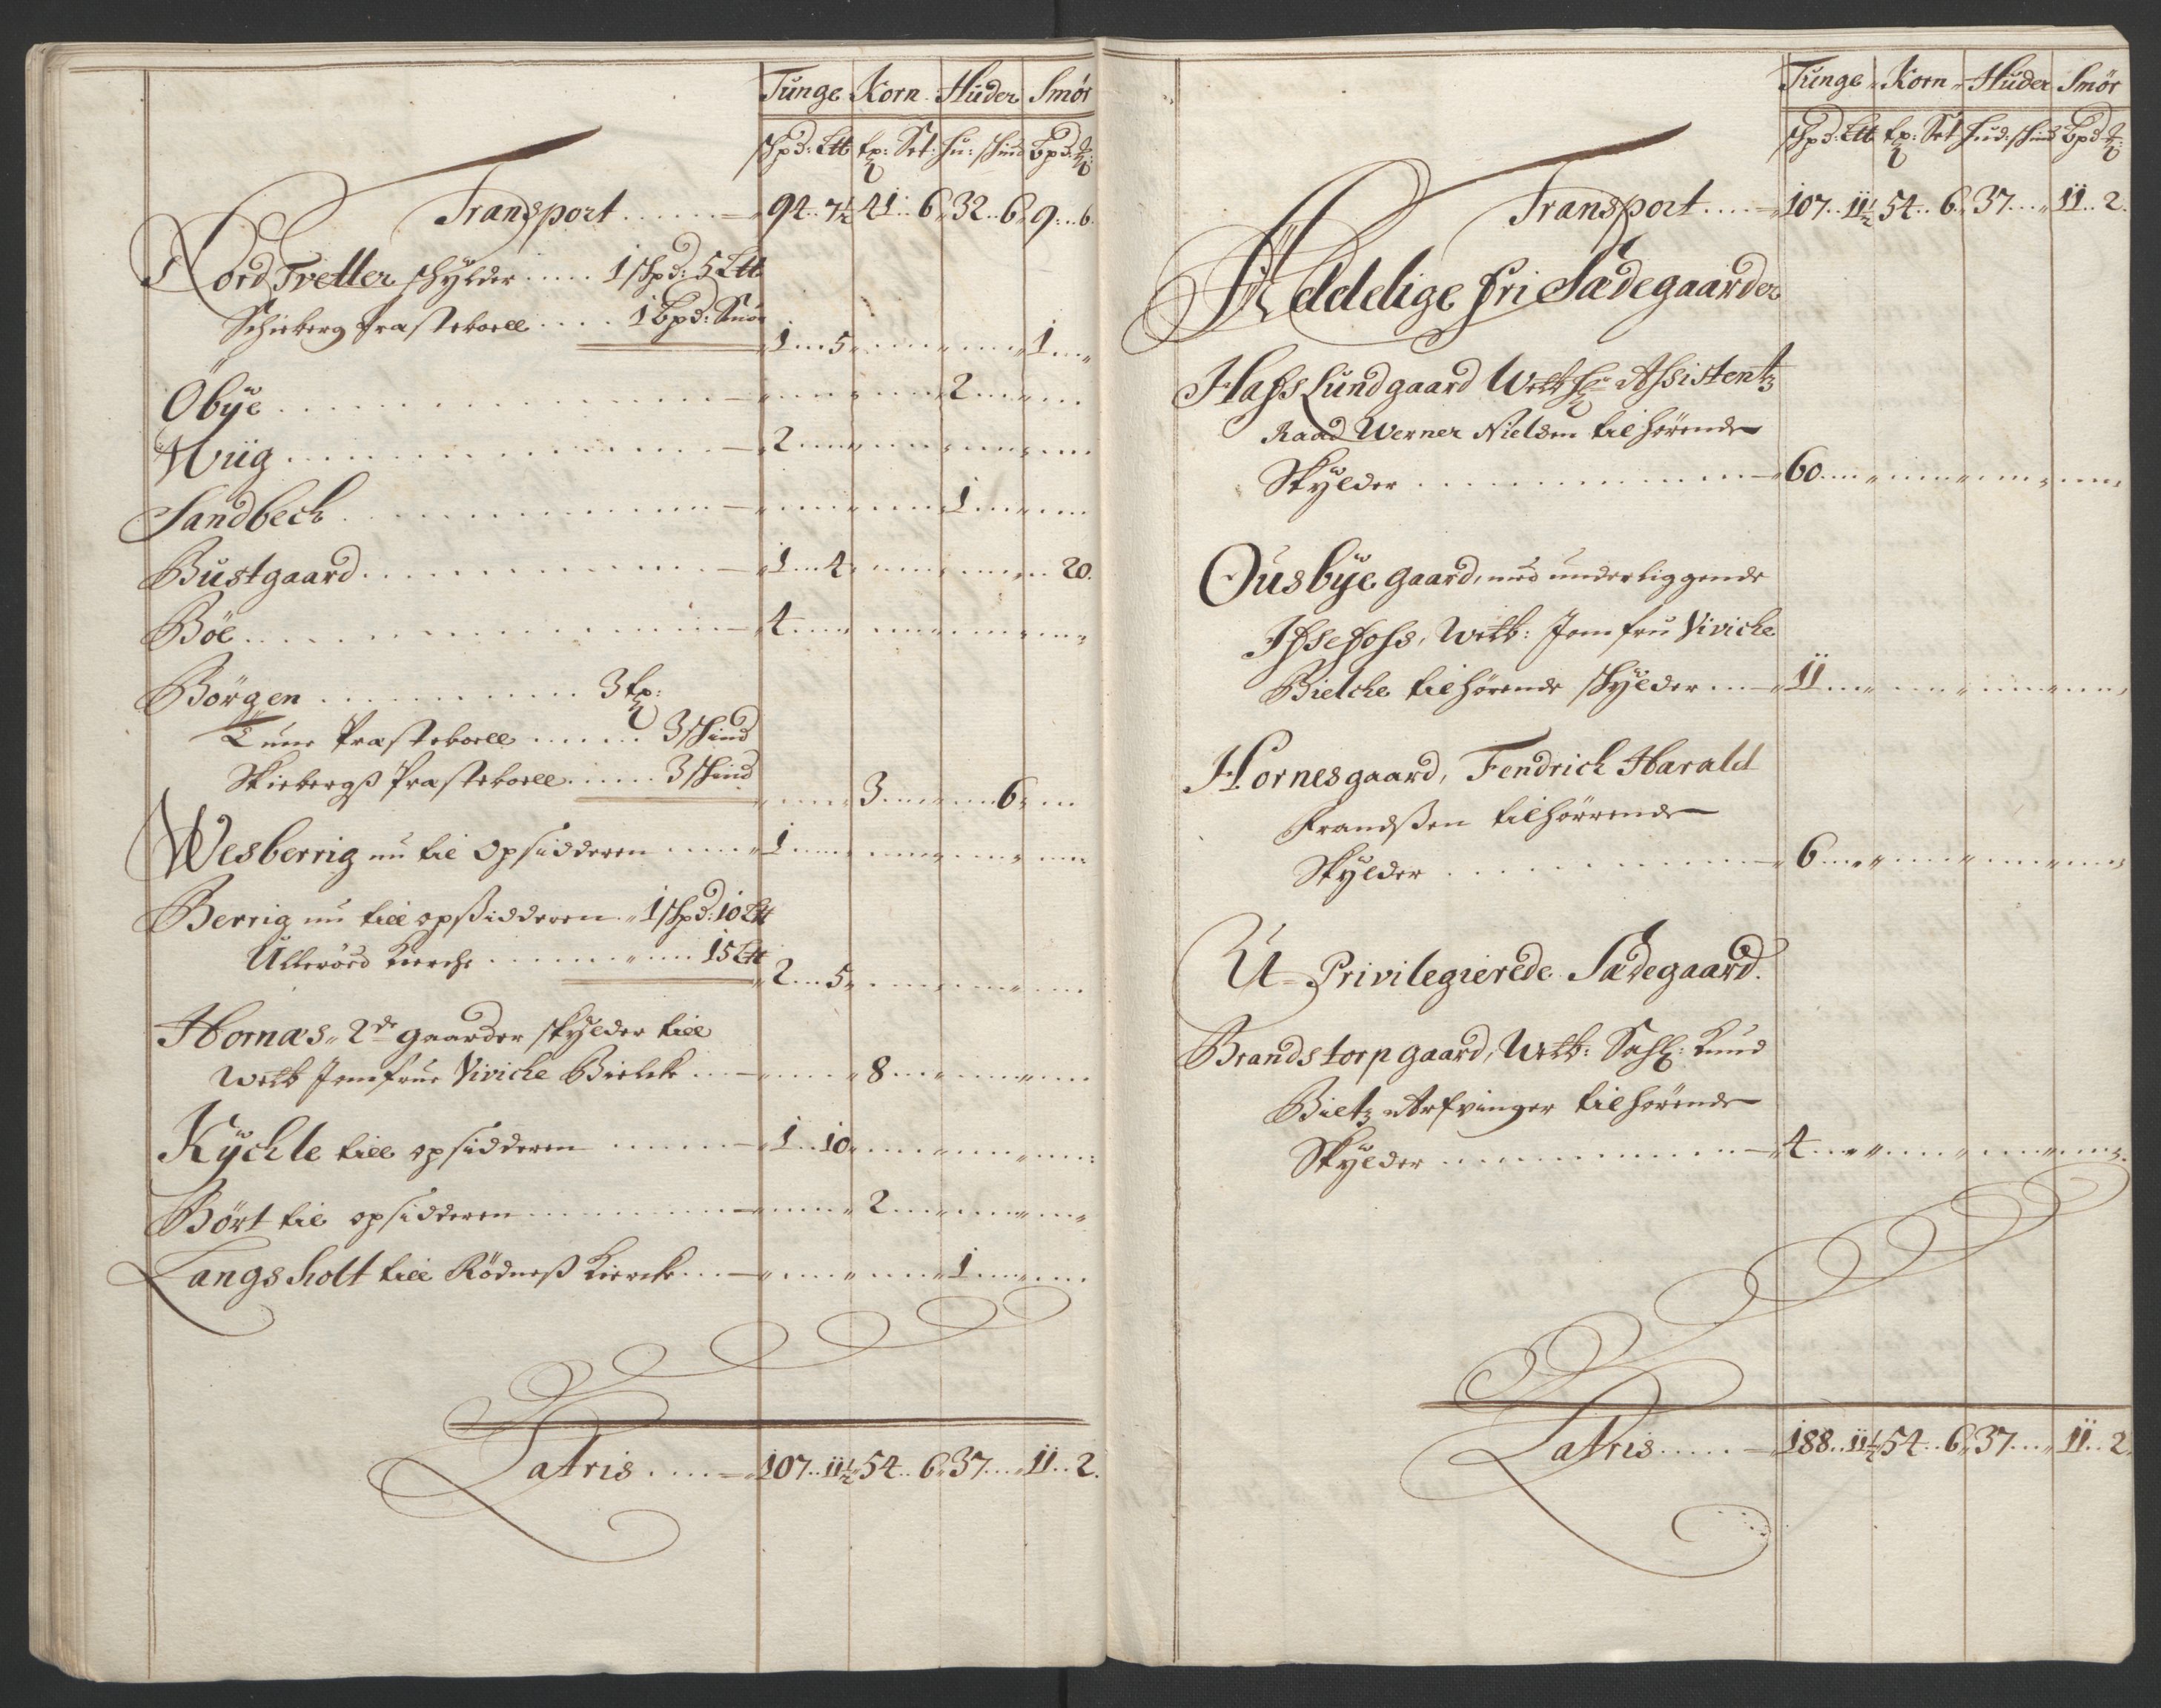 Tunge Korn Huder Smør
schpd: Ltt tp: Set: Hu: schind Bpd: 
Transport ...... 94 .. 7½ 41 .. 6 32 .. 6 9 ... 6
Nord Tvetter schylder ..... 1 schpd: 5 Ltt
Schieberg Præsteboell .... 1 Bpd: Smør
1 ... 5 ... 1
Öbÿe ... 2
Wiig ... 2
Sandbech ... 1
Bustgaard ... 1 ... 4 ... 20
Böe ... 4
Börgen ... 3 tp:
Tune Præsteboell ..... 3 schind
Skiebergß Præsteboell ..... 3 schind
3 ... 6
Wesberrig nu til Opsidderen ... 1
Berrig nu till opßidderen .. 1 schpd: 10 Ltt
Ulleröed Kierche ... 15 Ltt
2 ... 5
Hornæs, 2de gaarder skÿlder till
Welb Jomfrue Viviche Bielche ... 8
Kÿchle till opsidderen ... 1 .. 10
Bört til opsidderen ... 2
Langsholt till Rödneß Kierche ... 1
Latris .... 107 .. 11½ 54 .. 6 37 ... 11 .. 2
Tunge Korn Huder Smör
schpd: Ltt tp: Set Hud: schind Bpd
Transport .... 107 .. 11½ 54 .. 6 37 ... 11 .. 2
Addelige fri Sædegaarder
Hafslundgaard Welb Hr Assistentz
Raad Werner Nielsen tilhörende
Skÿlder ... 60
Ousbÿe gaard, med underliggende
Isefoss, Welb: Jomfru Viviche
Bielche tilhörende skÿlder ... 11
Hornesgaard, Fendrich Harald
Frandßen tilhörrende
Skÿlder ... 6
U-Privilegierede Sædegaard.
Brandstorpgaard, Welb: Sahl: Knud
Bieltz Arfvinger tilhörende
Skÿlder ... 4
Latris ..... 188 .. 11½ 54 .. 6 37 ... 11 .. 2